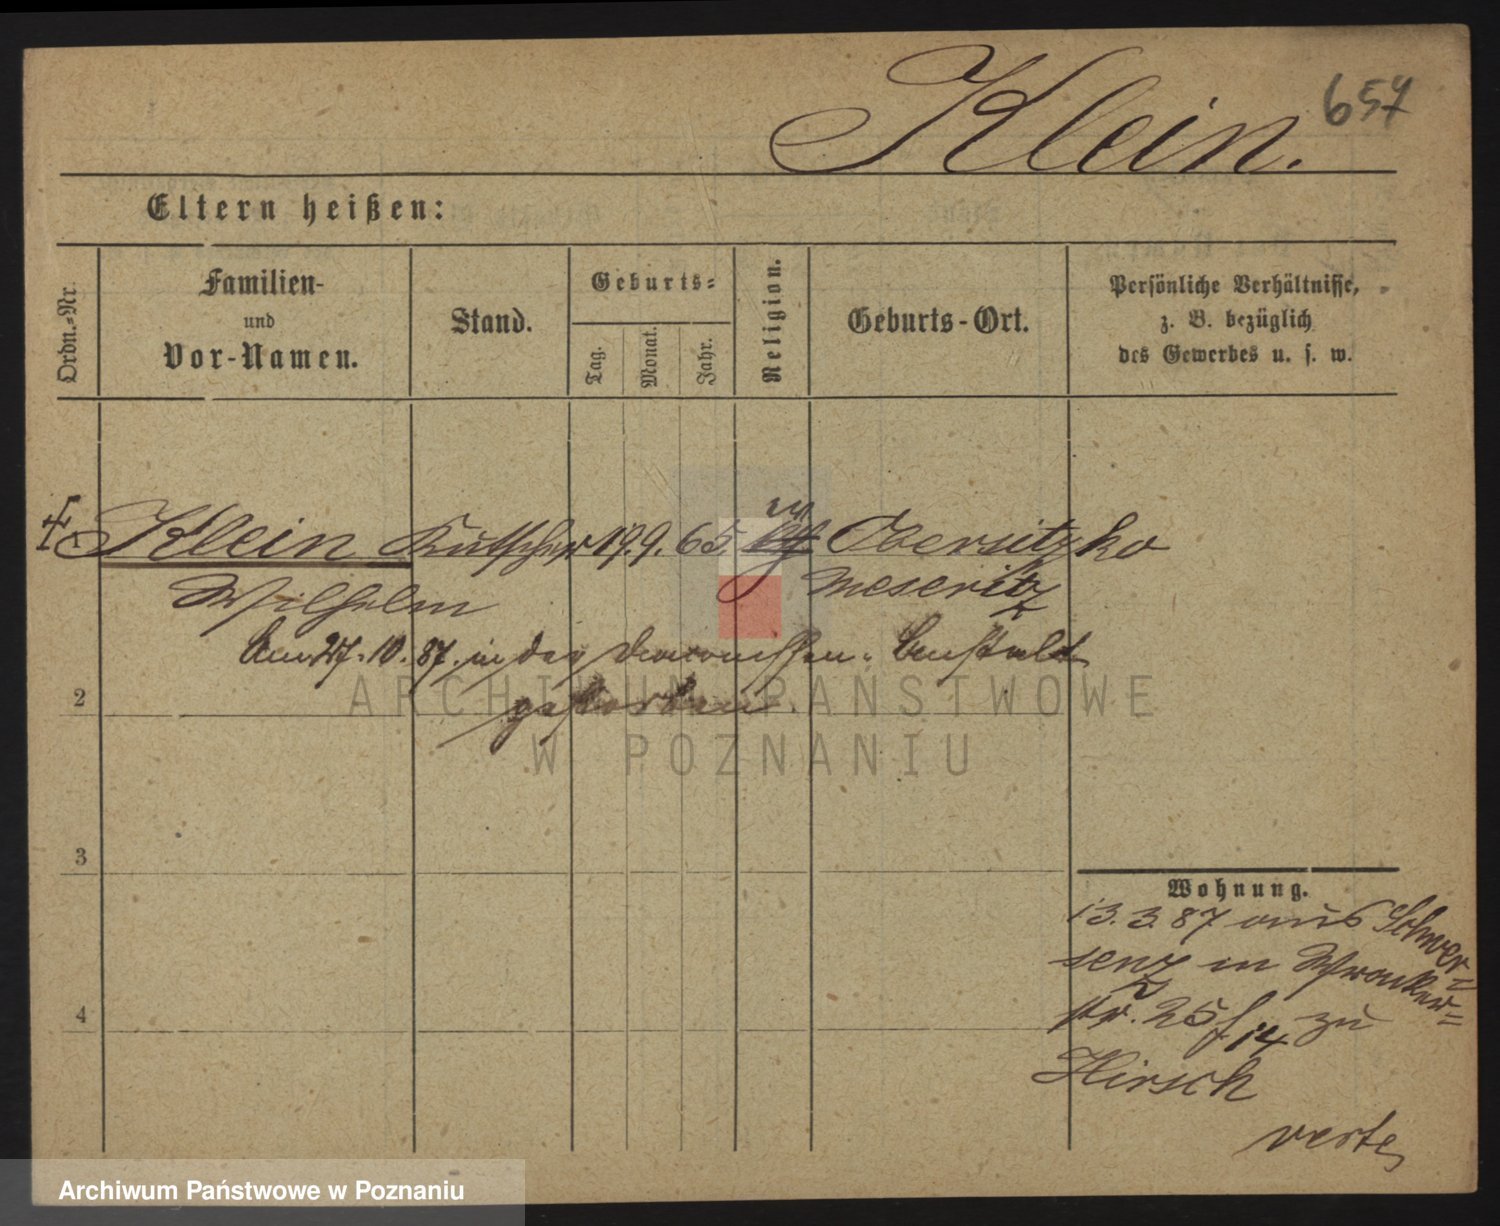 Klein. 657
Eltern heißen:
Ordn.-Nr.
Familien-
und
Vor-Namen.
Stand.
Geburts-
Tag.
Monat.
Jahr.
Religion.
Geburts-Ort.
Persönliche Verhältnisse,
z. B. bezüglich
des Gewerbes u. s. w.
1 Klein Kutscher 19. 9. 65. Obersitzko
Wilhelm Meseritz
Am 27. 10. 87. in der Anstalt
gestorben.
2
3
4
Wohnung.
13. 3. 87 aus Schwer=
senz in Wronker=
str. 25 14 zu
Hirsch
verte
ARCHIWUM PAŃSTWOWE
W POZNANIU
Archiwum Państwowe w Poznaniu